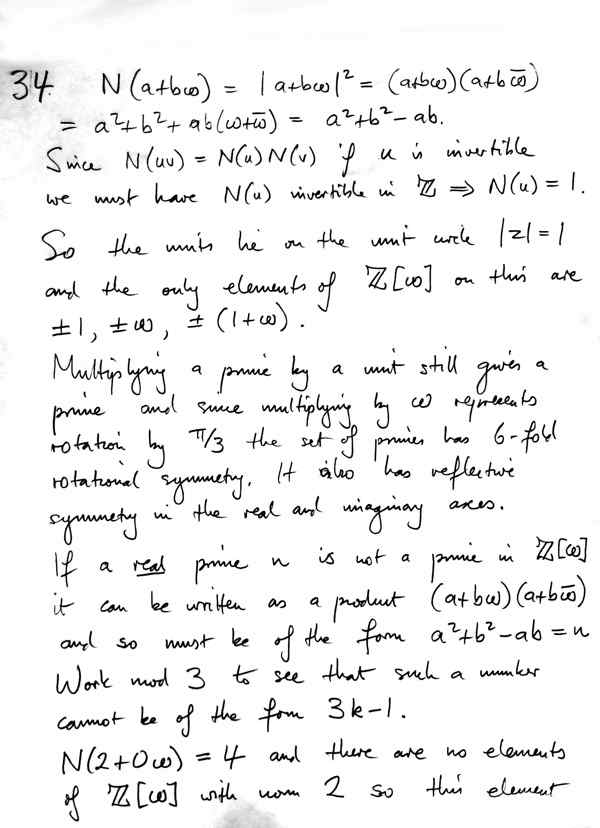 34. N(a+bω) = |a+bω|² = (a+bω)(a+bω̅)
= a²+b²+ab(ω+ω̅) = a²+b²-ab.
Since N(uv) = N(u)N(v) if u is invertible
we must have N(u) invertible in ℤ ⇒ N(u) = 1.
So the units lie on the unit circle |z| = 1
and the only elements of ℤ[ω] on this are
±1, ±ω, ±(1+ω).
Multiplying a prime by a unit still gives a
prime and since multiplying by ω represents
rotation by π/3 the set of primes has 6-fold
rotational symmetry. It also has reflective
symmetry in the real and imaginary axes.
If a real prime n is not a prime in ℤ[ω]
it can be written as a product (a+bω)(a+bω̅)
and so must be of the form a²+b²-ab = n
Work mod 3 to see that such a number
cannot be of the form 3k-1.
N(2+0ω) = 4 and there are no elements
of ℤ[ω] with norm 2 so this element